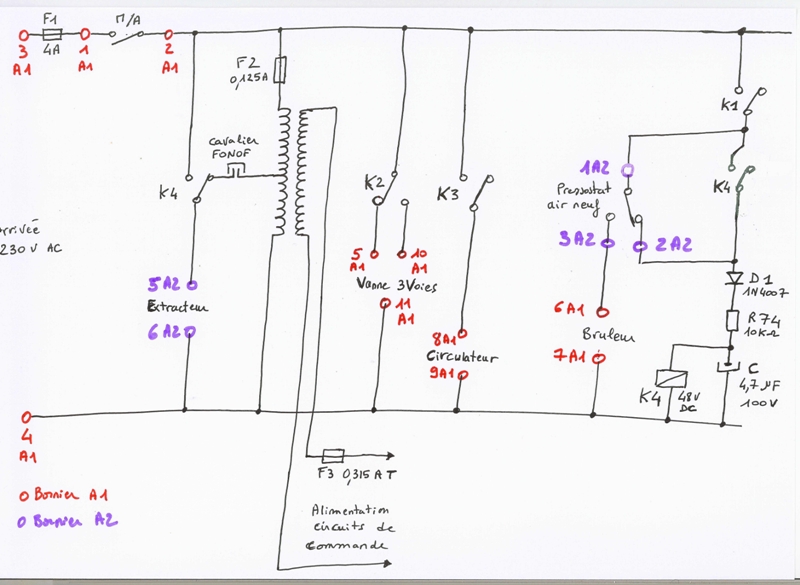 F1
4A
3
A1
1
A1
M/A
2
A1
F2
0,125A
Cavalier
FONOF
K4
K2
K3
K1
K4
1A2
Pressostat
air neuf
3A2
2A2
arrivée
230 V AC
5A2
Extracteur
6A2
5
A1
10
A1
Vanne 3Voies
11
A1
8A1
Circulateur
9A1
6A1
Bruleur
7A1
D1
1N4007
R74
10KΩ
C
4,7µF
100V
K4
48V
DC
4
A1
F3 0,315 A T
Alimentation
circuits de
commande
Bornier A1
Bornier A2